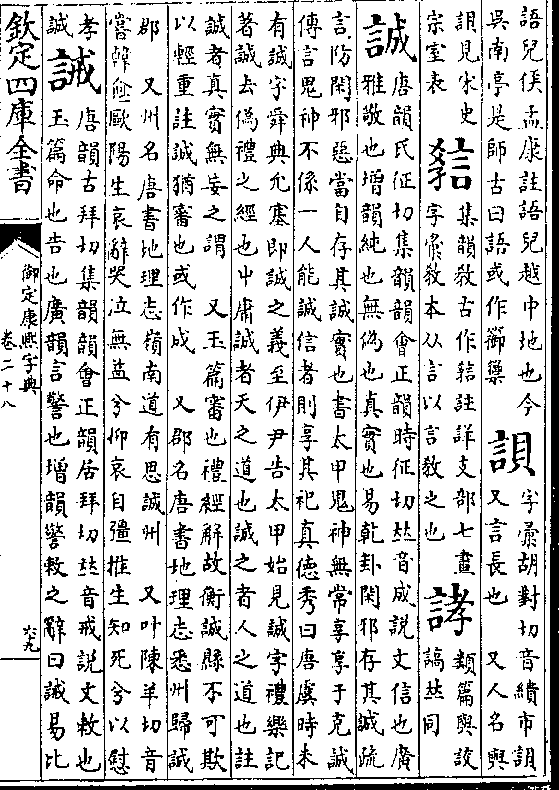 語兒侯孟康註語兒越中地也今
吳南亭是師古曰語或作
䛛
字彙胡對切音繢市䛛
又言長也 又人名與
䛛見宋史
宗室表
集韻教古作 註詳支部七畫
字彙敎本从言以言教之也
誟
類篇與詨
謞𠀤同
誠
唐韻氏征切集韻韻會正韻時征切𠀤音成說文信也廣
雅敬也增韻純也無偽也真實也易乾卦閑邪存其誠疏
言防閑邪惡當自存其誠實也書太甲鬼神無常享享于克誠
傳言鬼神不係一人能誠信者則享其祀真德秀曰唐虞時未
有誠字舜典允塞即誠之義至伊尹告太甲始見誠字禮樂記
著誠去偽禮之經也中庸誠者天之道也誠之者人之道也註
誠者真實無妄之謂 又玉篇審也禮經解故衡誠縣不可欺
以輕重註誠猶審也或作成 又郡名唐書地理志悉州歸誠
郡 又州名唐書地理志嶺南道有思誠州 又叶陳羊切音
嘗韓愈歐陽生哀辭哭泣無益兮抑哀自彊推生知死兮以慰
孝
誠
誡
唐韻古拜切集韻韻會正韻居拜切𠀤音戒說文敕也
玉篇命也告也廣韻言警也增韻警敕之辭曰誡易比
欽定四庫全書
御定康熙字典
卷二十八
六九